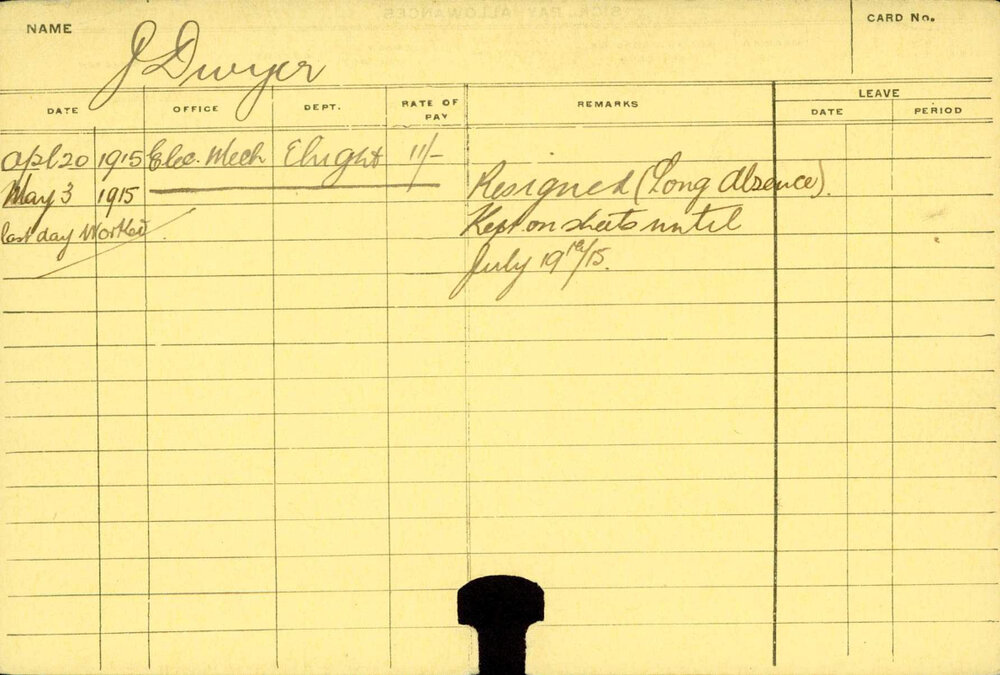 NAME J Dwyer CARD No.
DATE OFFICE DEPT. RATE OF PAY REMARKS LEAVE
DATE PERIOD
Apl 20 1915 Elec. Mech Elught 11/-
May 3 1915 Resigned (Long Absence).
last day Worked. Kept on sheets until
July 19th/15.